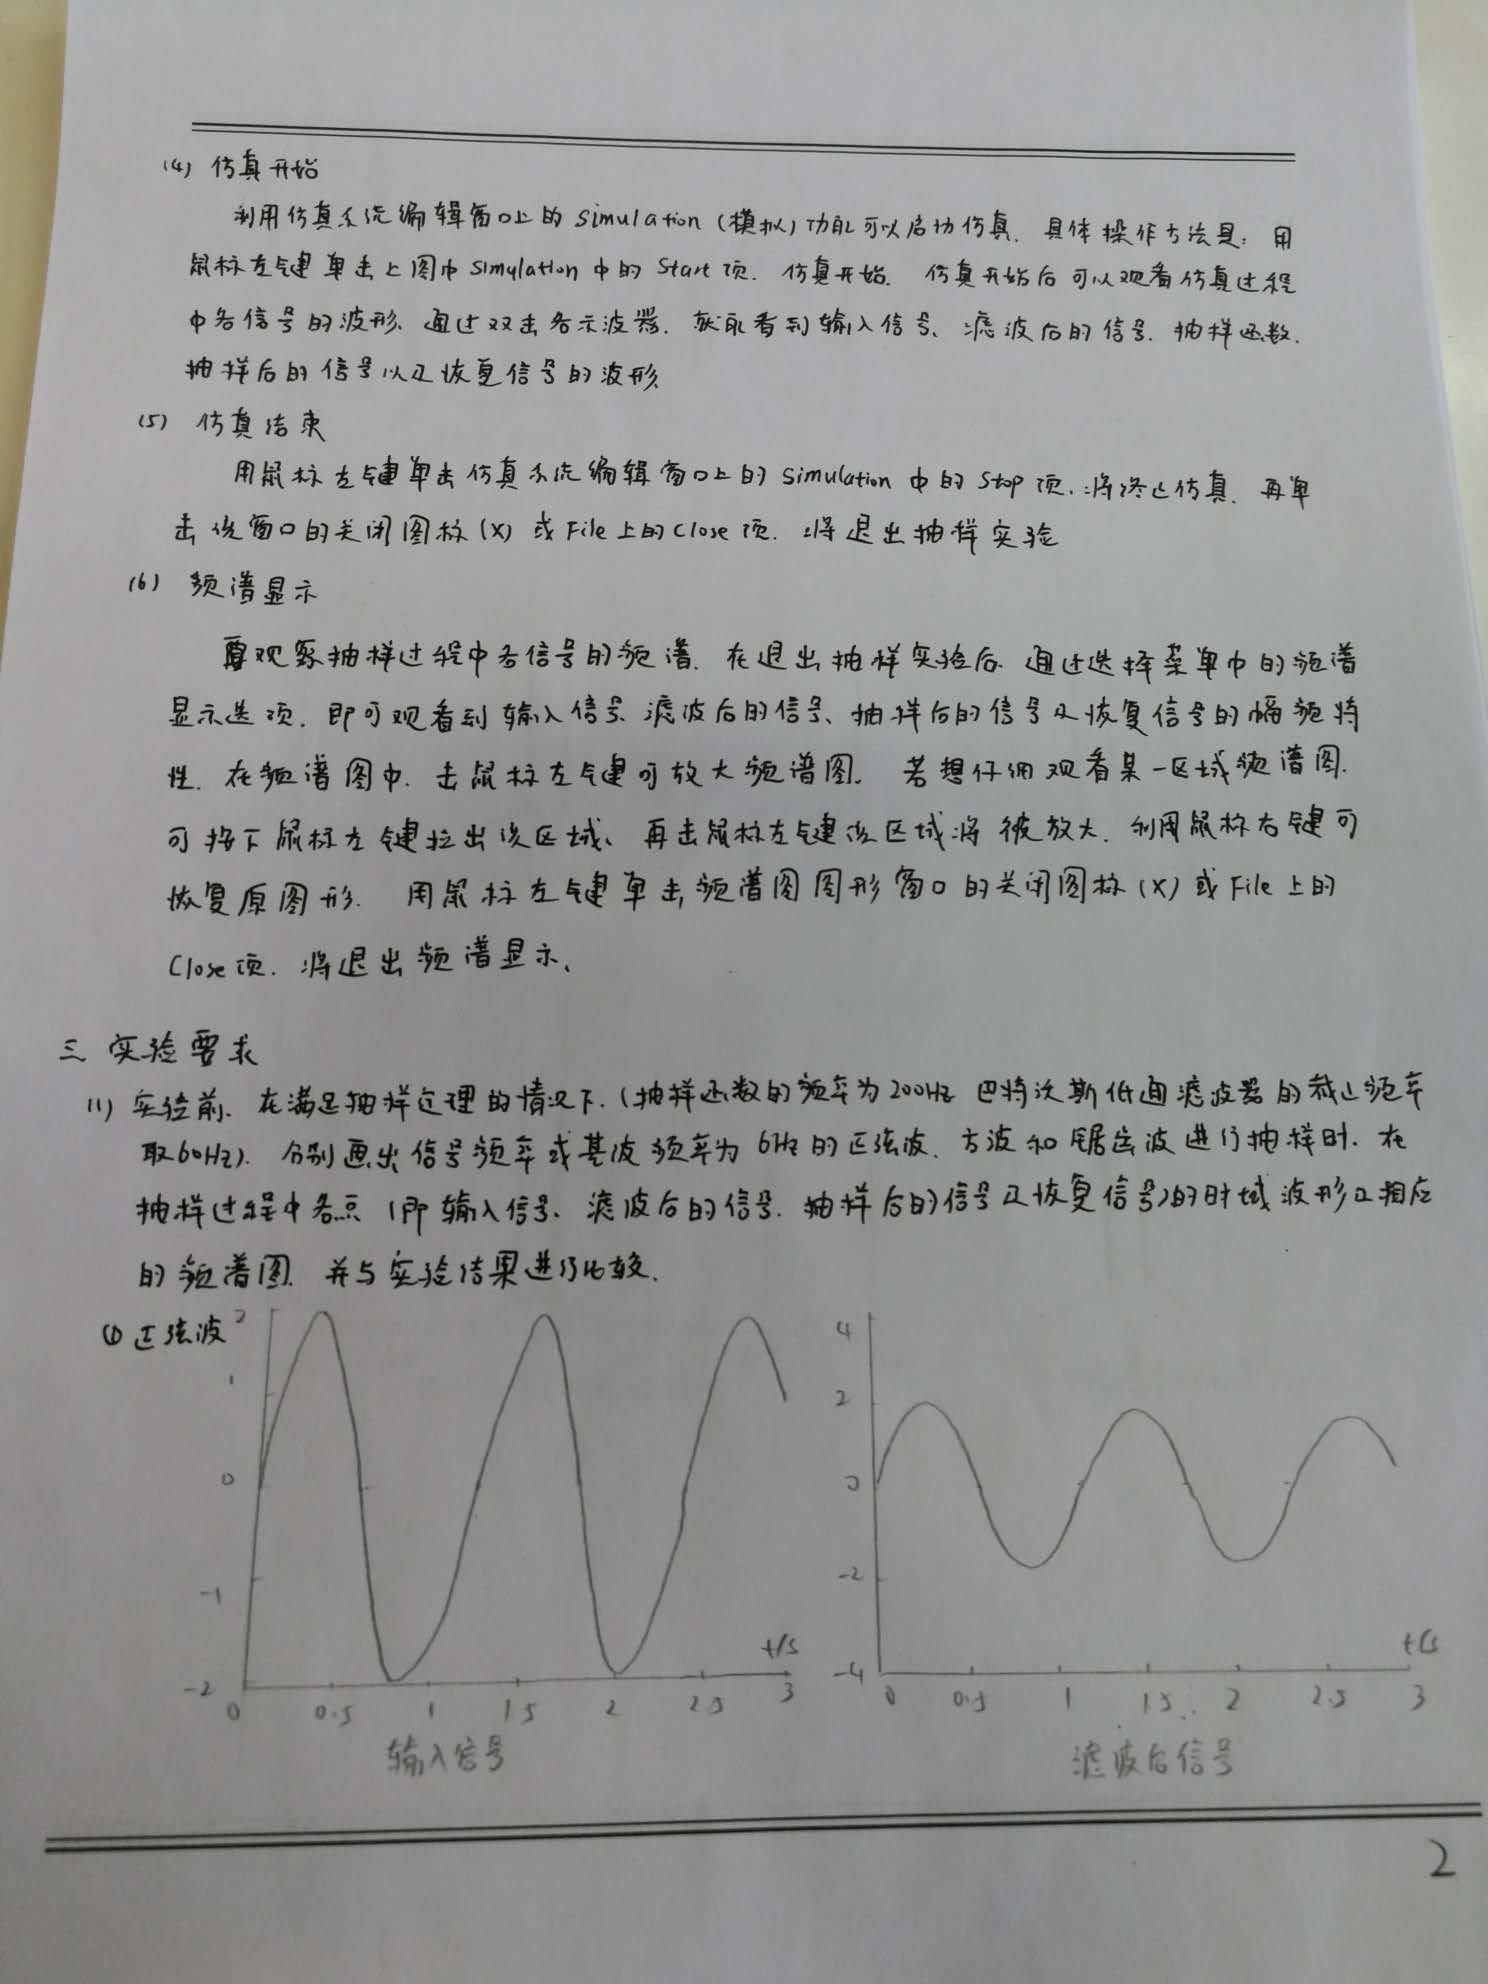 (4) 仿真开始
利用仿真系统编辑窗口上的 simulation (模拟) 功能可以启动仿真. 具体操作方法是: 用
鼠标左键单击上图中 simulation 中的 Start 项. 仿真开始. 仿真开始后可以观看仿真过程
中各信号的波形. 通过双击各示波器. 就能看到输入信号、滤波后的信号. 抽样函数.
抽样后的信号以及恢复信号的波形.
(5) 仿真结束
用鼠标左键单击仿真系统编辑窗口上的 simulation 中的 Stop 项. 将终止仿真. 再单
击该窗口的关闭图标 (X) 或 File 上的 Close 项. 将退出抽样实验
(6) 频谱显示
要观察抽样过程中各信号的频谱. 在退出抽样实验后. 通过选择菜单中的频谱
显示选项. 即可观看到输入信号、滤波后的信号、抽样后的信号及恢复信号的幅频特
性. 在频谱图中. 击鼠标左键可放大频谱图. 若想仔细观看某一区域频谱图.
可按下鼠标左键拉出该区域、再击鼠标左键该区域将被放大. 利用鼠标右键可
恢复原图形. 用鼠标左键单击频谱图图形窗口的关闭图标 (X) 或 File 上的
Close 项. 将退出频谱显示、
三 实验要求
(1) 实验前. 在满足抽样定理的情况下. (抽样函数的频率为 200Hz 巴特沃斯低通滤波器的截止频率
取 60Hz). 分别画出信号频率或基波频率为 6Hz 的正弦波. 方波和锯齿波进行抽样时. 在
抽样过程中各点 (即输入信号、滤波后的信号. 抽样后的信号及恢复信号)的时域波形及相应
的频谱图. 并与实验结果进行比较.
① 正弦波
2
1
0
-1
-2
0 0.5 1 1.5 2 2.5 3
t/s
输入信号
4
2
0
-2
-4
0 0.5 1 1.5 2 2.5 3
t/s
滤波后信号
2